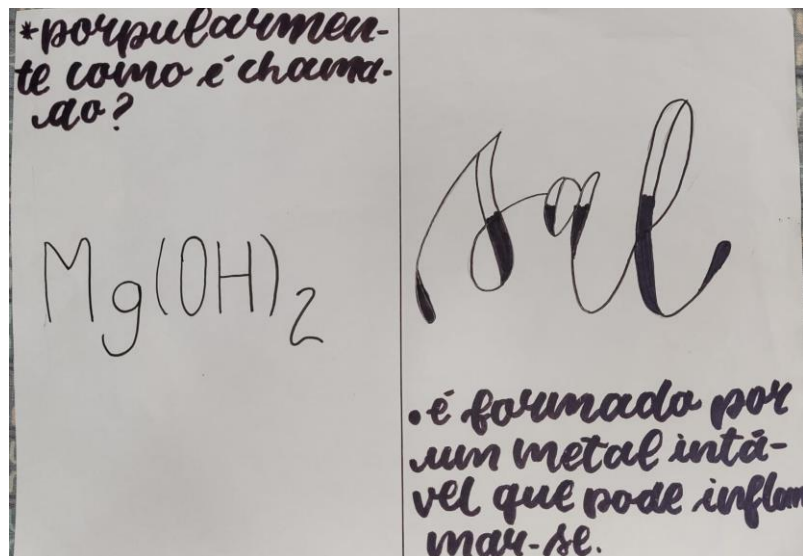 *porpularmen-
te como é chama-
do?
Mg(OH)2
sal
•é formado por
um metal intá-
vel que pode inflam
mar-se.